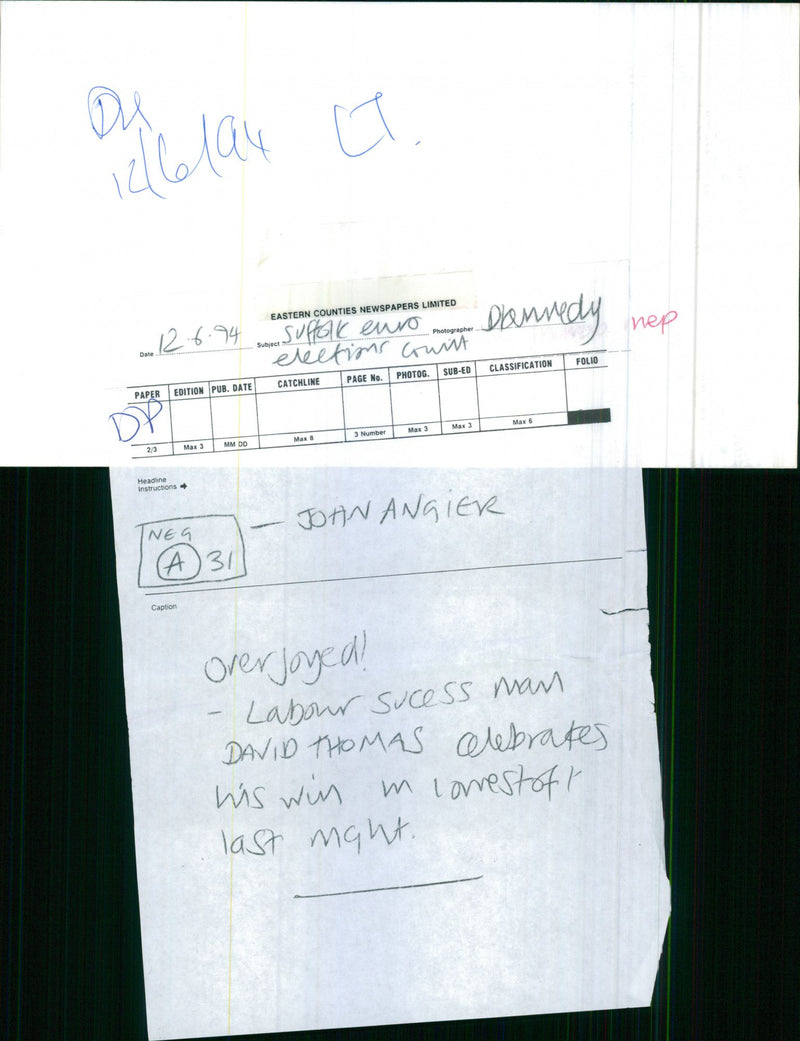 12/6/94 LT.
EASTERN COUNTIES NEWSPAPERS LIMITED
Date 12.6.94 Subject Suffolk euro Photographer DKennedy nep
elections count
PAPER EDITION PUB. DATE CATCHLINE PAGE No. PHOTOG. SUB-ED CLASSIFICATION FOLIO
DP
2/3 Max 3 MM DD Max 8 3 Number Max 3 Max 3 Max 6
Headline
Instructions →
NEG
A 31 — JOHN ANGIER
Caption
Overjoyed!
- Labour sucess man
DAVID THOMAS celebrates
his win in lowestoft
last night.